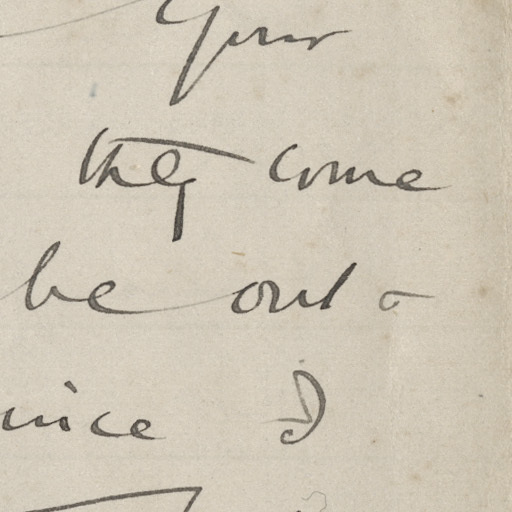 your
they come
be out
nice I